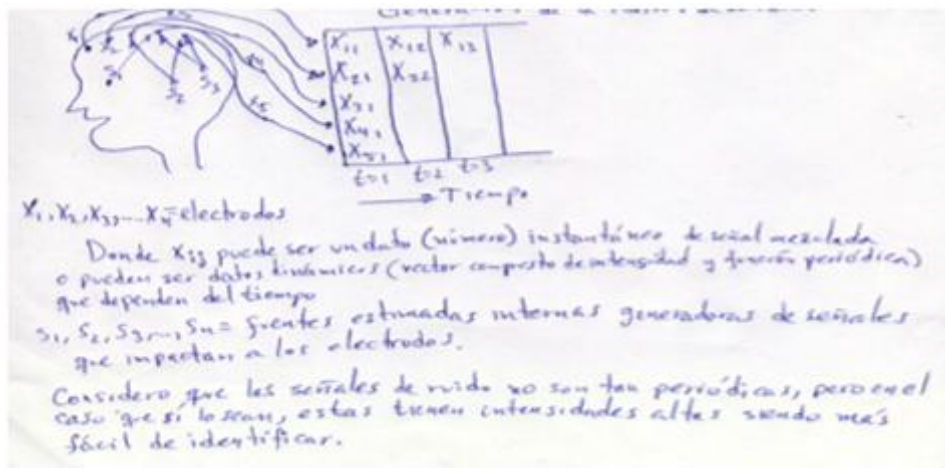 Generación de la
X11 X12 X13
X21 X22
X31
X41
X51
t=1 t=2 t=3
Tiempo
X1 X2
X5
S1 S2 S3
X1, X2, X3, ... Xn = electrodos
Donde Xij puede ser un dato (número) instantáneo de señal mezclada
o pueden ser datos dinámicos (vector compuesto de intensidad y función periódica)
que dependen del tiempo
S1, S2, S3, ..., Sn = fuentes estimadas internas generadoras de señales
que impactan a los electrodos.
Considero que las señales de ruido no son tan periódicas, pero en el
caso que sí lo sean, estas tienen intensidades altas siendo más
fácil de identificar.